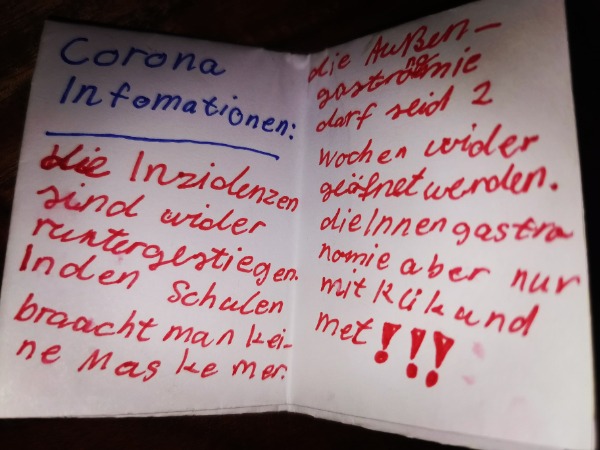 Corona
Infomationen:
die Inzidenzen
sind wider
runtergestiegen.
Inden Schulen
braacht man kei-
ne Maske mer.
die Außen-
gastronomie
darf seid 2
wochen wider
geöfnet werden.
die Innengastro
nomie aber nur
mit klik und
met!!!!